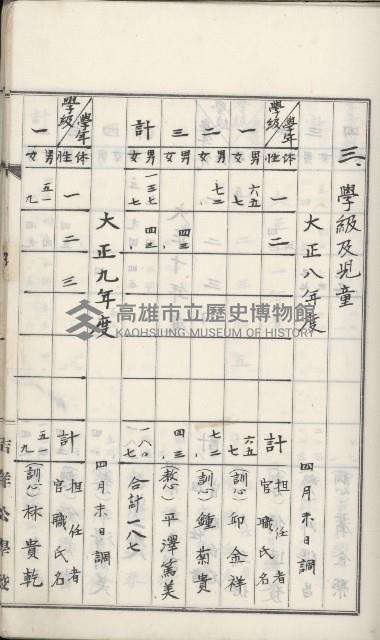 三、學級及児童
大正八年度
四月末日調
學年
學級
性 一 二 計 担任者 官職氏名
一 男 六五 六五 (訓心) 邱金祥
女 七 七
二 男 七二 七二 (訓心) 鍾菊貴
女
三 男 四三 四三 (教心) 平澤篤美
女
計 男 一三七 四三 一八〇 合計一八七
女 七 七
大正九年度
四月末日調
學年
學級
性 一 二 三 計 担任者 官職氏名
一 男 五一 五一 (訓心) 林貴乾
女 九 九
吉洋公學校
高雄市立歷史博物館
KAOHSIUNG MUSEUM OF HISTORY